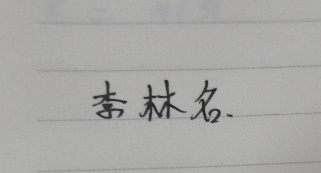 李林名.